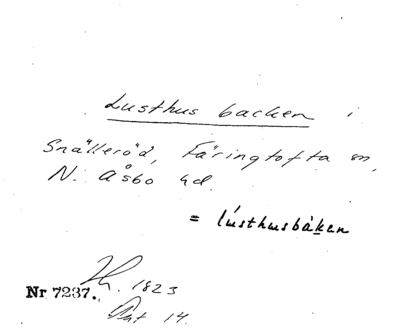 Lusthus backen i
Snälleröd, Färingtofta sn,
N. Åsbo hd.
= lústhusbàken
Nr 7237. H. 1823
Ant 14